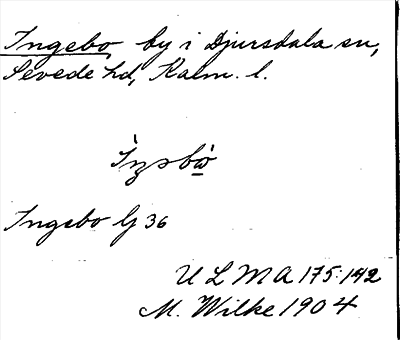 Ingebo by i Djursdala sn,
Sevede hd, Kalm. l.
Ingebo Gj 36
U L M A 175:142
M. Wilke 1904